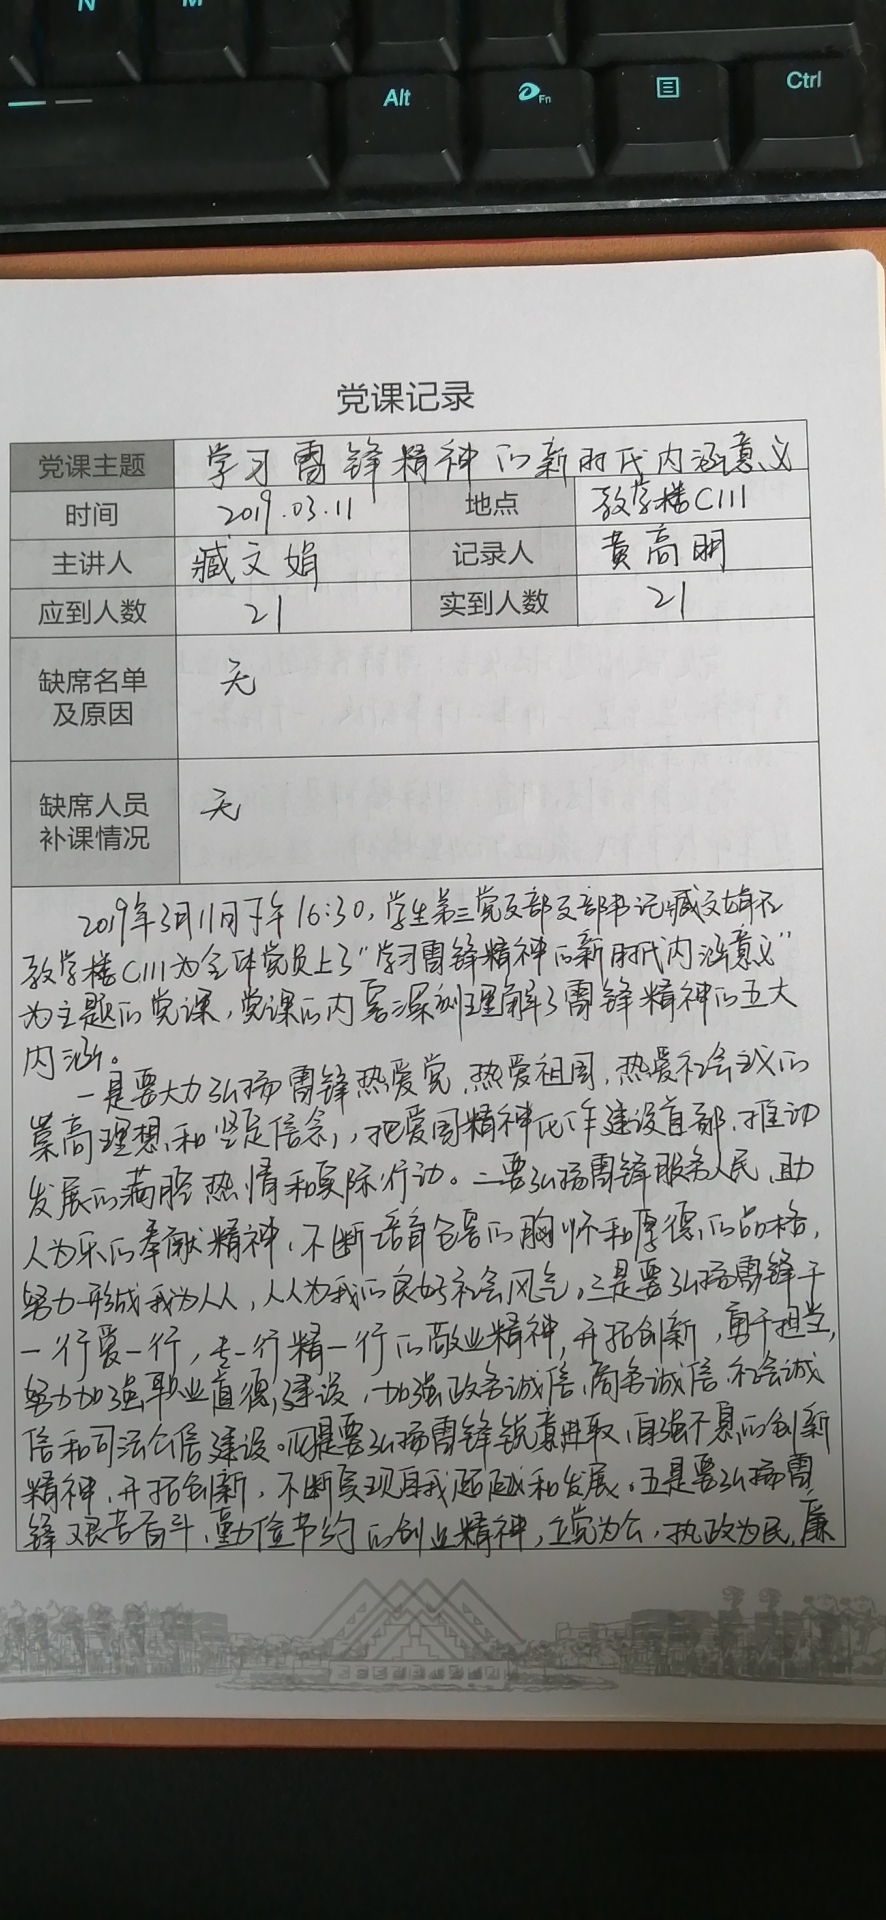 N M
Alt Fn Ctrl
党课记录
党课主题 学习雷锋精神的新时代内涵意义
时间 2019.03.11 地点 教学楼C111
主讲人 臧文娟 记录人 黄高明
应到人数 21 实到人数 21
缺席名单
及原因
无
缺席人员
补课情况
无
2019年3月11日下午16:30,学生第三党支部支部书记臧文娟在
教学楼C111为全体党员上了“学习雷锋精神的新时代内涵意义”
为主题的党课,党课的内容深刻理解了雷锋精神的五大
内涵。
一是要大力弘扬雷锋热爱党、热爱祖国、热爱社会主义的
崇高理想和坚定信念,把爱国精神化作建设首都、推动
发展的满腔热情和实际行动。二要弘扬雷锋服务人民、助
人为乐的奉献精神,不断培育包容的胸怀和厚德的品格,
努力形成我为人人,人人为我的良好社会风气。三是要弘扬雷锋干
一行爱一行,专一行精一行的敬业精神,开拓创新,勇于担当,
努力加强职业道德建设,加强政务诚信、商务诚信、社会诚
信和司法公信建设。四是要弘扬雷锋锐意进取、自强不息的创新
精神,开拓创新,不断实现自我超越和发展。五是要弘扬雷
锋艰苦奋斗、勤俭节约的创业精神,立党为公,执政为民,廉